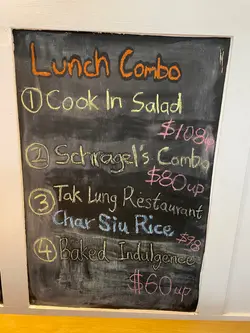 Lunch Combo
① Cook In Salad
$108up
② Schragel's Combo
$80up
③ Tak Lung Restaurant
Char Siu Rice
$78
④ Baked Indulgence
$60up